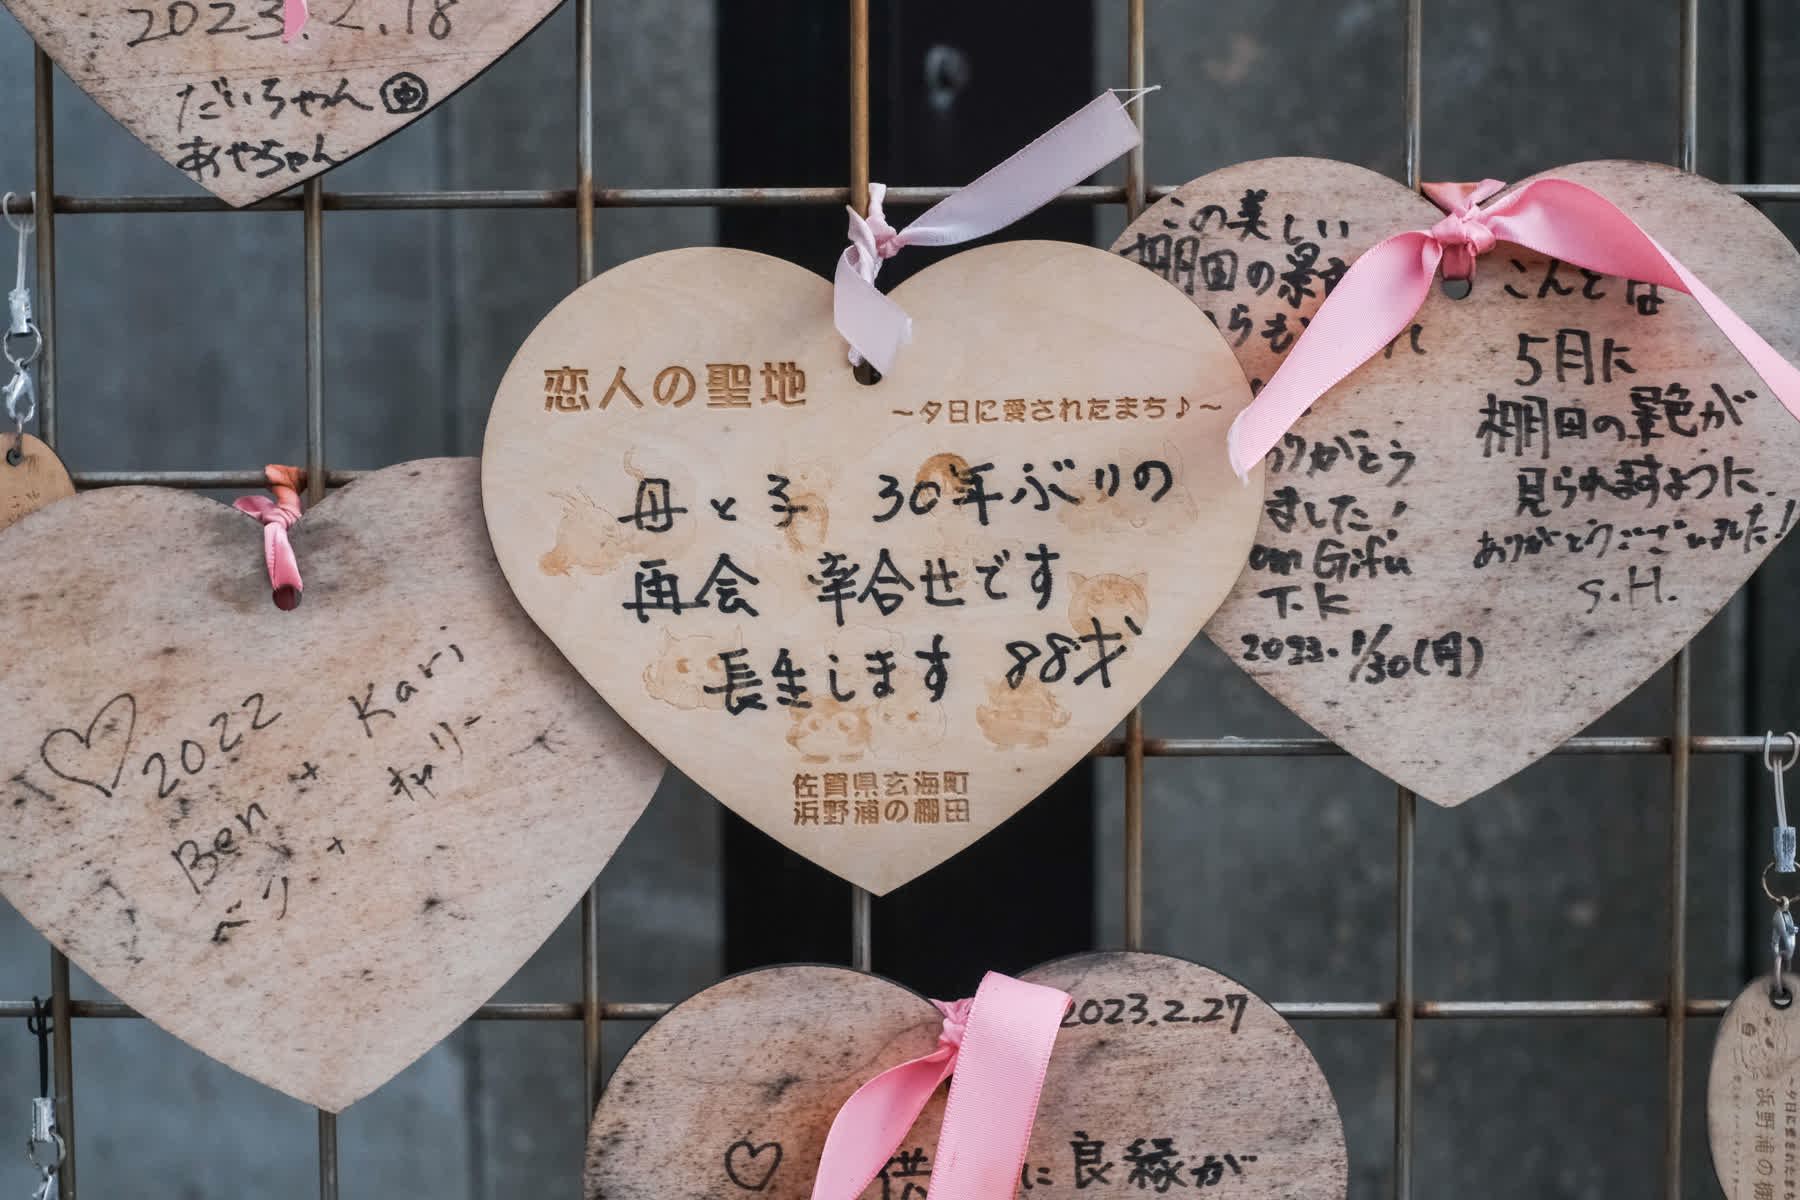 2023.2.18
だいちゃん
あやちゃん
恋人の聖地
～夕日に愛されたまち♪～
母と子 30年ぶりの
再会 幸合せです
長生します 88才
佐賀県玄海町
浜野浦の棚田
この美しい
棚田の景
らも
ありがとう
ました!
om Gifu
T.K
2023.1/30(月)
こんどは
5月に
棚田の景色が
見られますように.
ありがとうございました!
S.H.
2022
Ben + Kari
ベン + キャリー
2023.2.27
に良縁が
～夕日に愛されたまち
浜野浦の棚